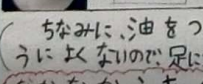 (ちなみに、油をつ
うによくないので、足に